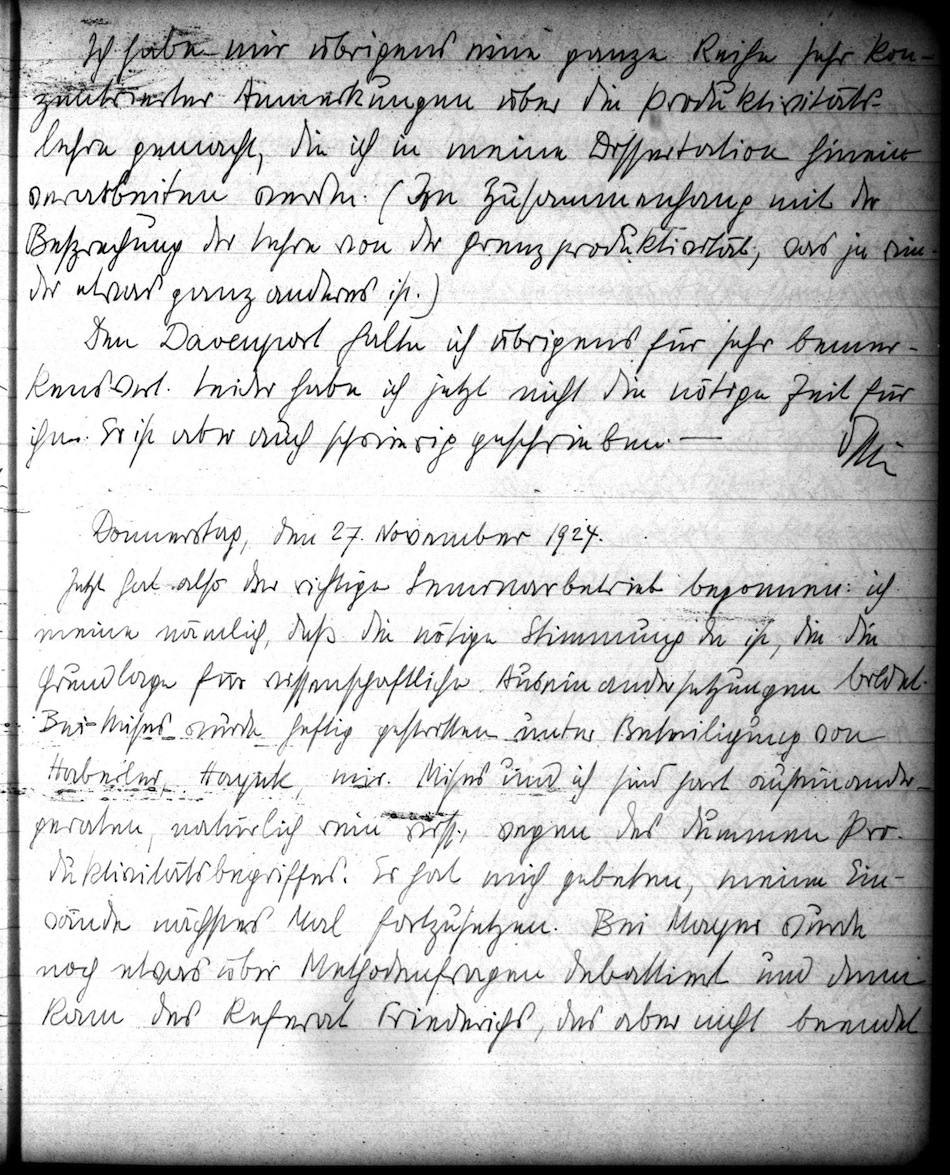 Ich habe mir übrigens eine ganze Reihe sehr kon-
zentrierter Anmerkungen über die Produktivitäts-
lehre gemacht, die ich in meine Dissertation hinein
verarbeiten werde. (Im Zusammenhang mit der
Besprechung der Lehre von der Grenzproduktivität, was ja wie-
der etwas ganz anderes ist.)
Den Davenport halte ich übrigens für sehr bemer-
kenswert. Leider habe ich jetzt nicht die nötige Zeit für
ihn. Er ist aber auch schwierig geschrieben. —
Donnerstag, den 27. November 1924.
Jetzt hat also der richtige Seminarbetrieb begonnen: ich
meine nämlich, daß die nötige Stimmung da ist, die die
Grundlage für wissenschaftliche Auseinandersetzungen bildet.
Bei Mises wurde heftig gestritten unter Beteiligung von
Haberler, Hayek, mir. Mises und ich sind hart aufeinander-
geraten, natürlich rein wiss., wegen des dummen Pro-
duktivitätsbegriffes. Er hat mich gebeten, meine Ein-
wände nächstes Mal fortzusetzen. Bei Mayer wurde
noch etwas über Methodenfragen debattiert und dann
kam das Referat Friederichs, das aber nicht beendet